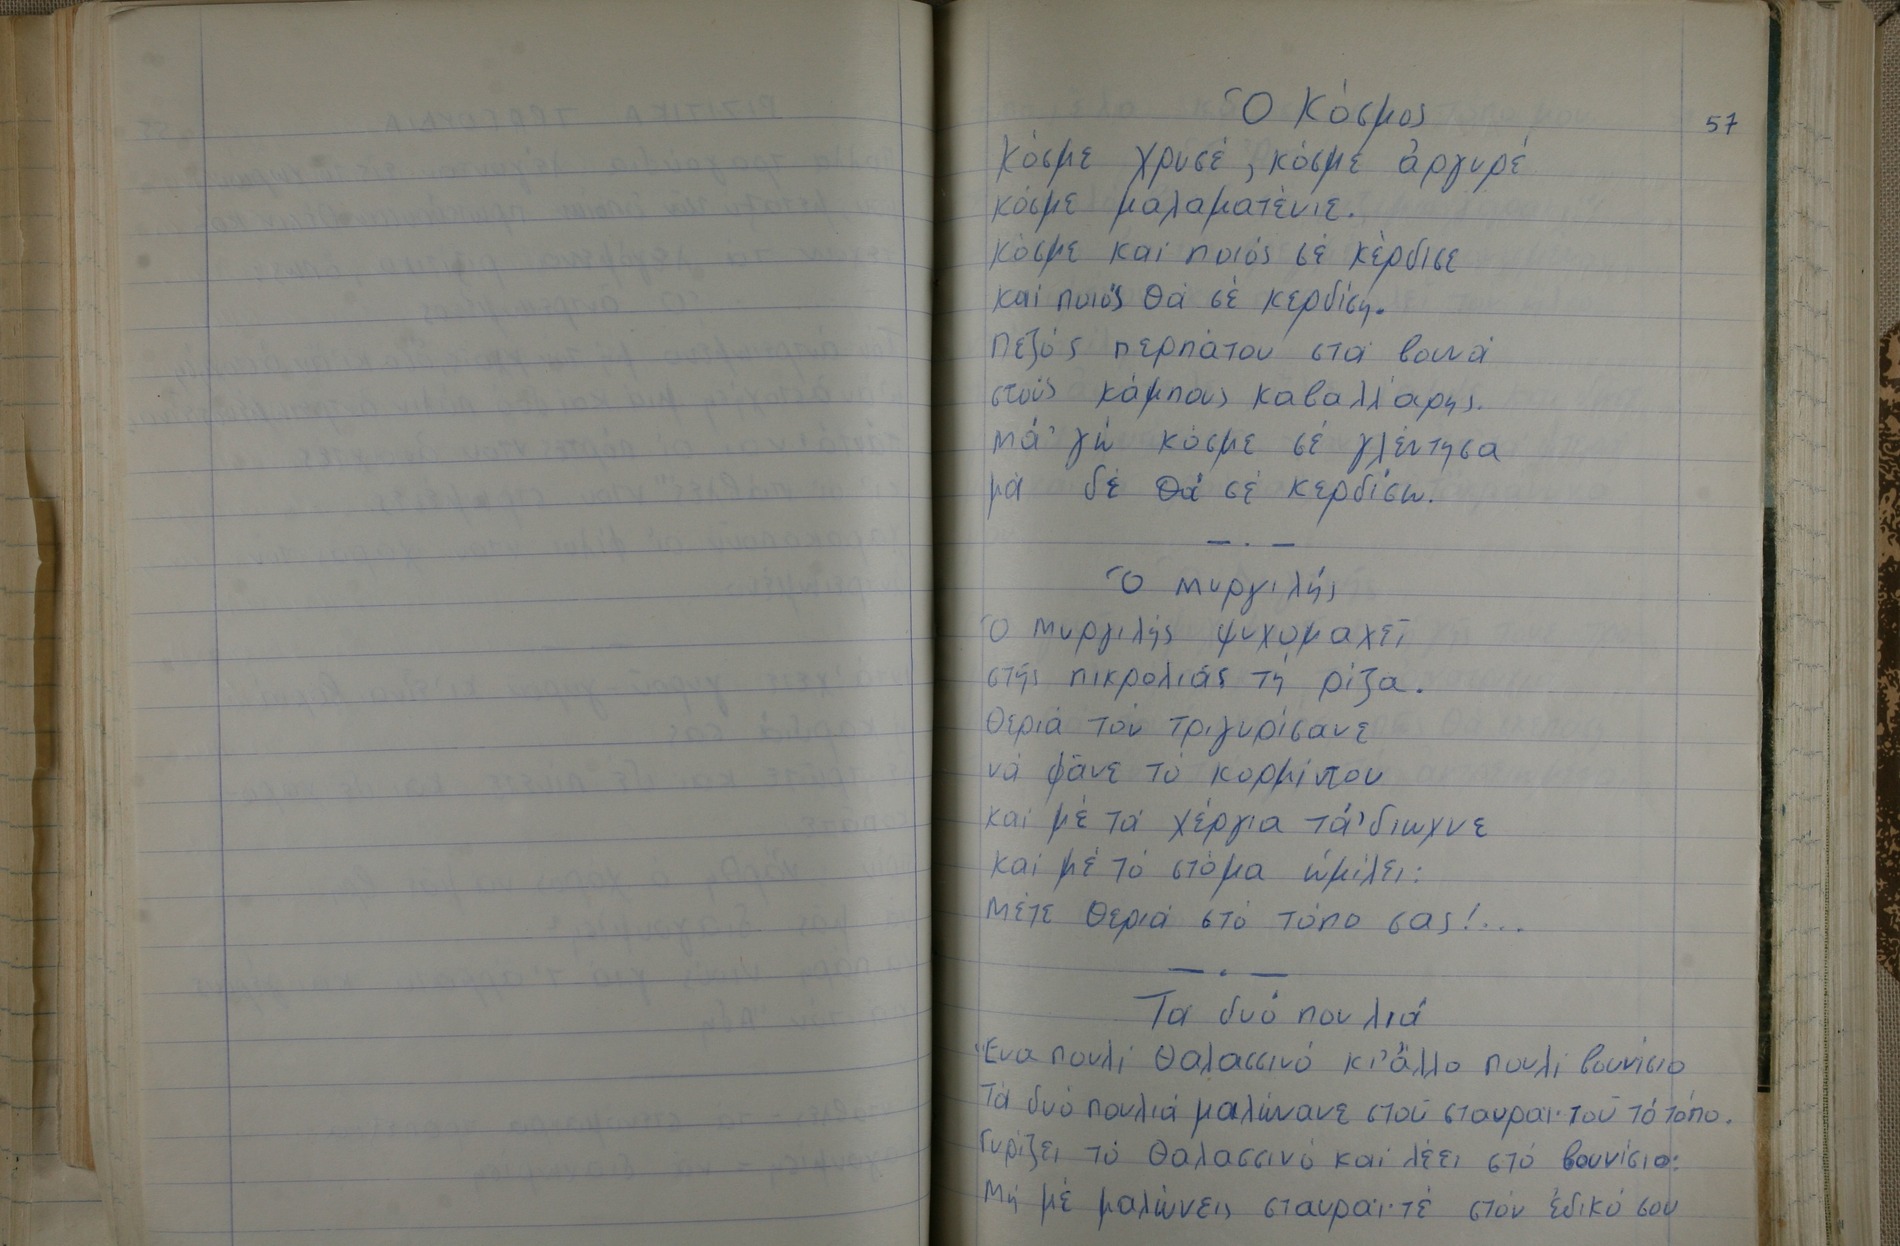 57
Ὁ Κόσμος
Κόσμε χρυσέ, κόσμε ἀργυρέ
κόσμε μαλαματένιε.
Κόσμε καί ποιός σέ κέρδισε
καί ποιός θά σέ κερδίση.
Πεζός περπάτου στά βουνά
στούς κάμπους καβαλλάρης.
Μά 'γώ κόσμε σέ γλέντησα
μά δέ θά σέ κερδίσω.
— . —
Ὁ Μυργιλής
Ὁ Μυργιλής ψυχομαχεῖ
στής πικρολιάς τή ρίζα.
Θεριά τόν τριγυρίσανε
νά φᾶνε τό κορμίντου
καί μέ τά χέργια τά 'διωχνε
καί μέ τό στόμα ὡμίλει:
Μέτε θεριά στό τόπο σας!...
— . —
Τά δυό πουλιά
Ἕνα πουλί θαλασσινό κι' ἄλλο πουλί βουνίσιο
Τά δυό πουλιά μαλώνανε στοῦ σταυραϊτοῦ τό τόπο.
Γυρίζει τό θαλασσινό καί λέει στό βουνίσιο:
Μή μέ μαλώνεις σταυραϊτέ στόν ἐδικό σου